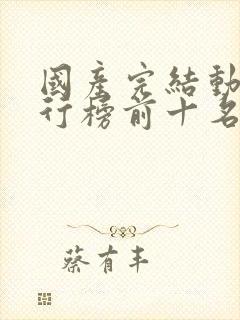 國產完結動
行榜前十名
蔡有丰